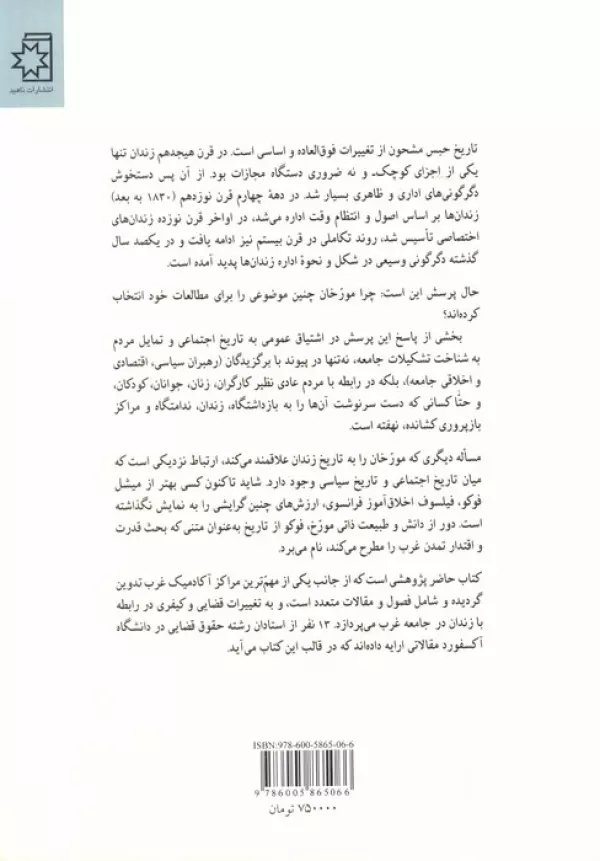 انتشارات ناهید
تاریخ حبس مشحون از تغییرات فوق‌العاده و اساسی است. در قرن هیجدهم زندان تنها
یکی از اجزای کوچک‌ـ و نه ضروری دستگاه مجازات بود. از آن پس دستخوش
دگرگونی‌های اداری و ظاهری بسیار شد. در دههٔ چهارم قرن نوزدهم (۱۸۳۰ به بعد)
زندان‌ها بر اساس اصول و انتظام وقت اداره می‌شد، در اواخر قرن نوزده زندان‌های
اختصاصی تأسیس شد، روند تکاملی در قرن بیستم نیز ادامه یافت و در یکصد سال
گذشته دگرگونی وسیعی در شکل و نحوهٔ اداره زندان‌ها پدید آمده است.
حال پرسش این است: چرا مورّخان چنین موضوعی را برای مطالعات خود انتخاب
کرده‌اند؟
بخشی از پاسخ این پرسش در اشتیاق عمومی به تاریخ اجتماعی و تمایل مردم
به شناخت تشکیلات جامعه، نه‌تنها در پیوند با برگزیدگان (رهبران سیاسی، اقتصادی
و اخلاقی جامعه)، بلکه در رابطه با مردم عادی نظیر کارگران، زنان، جوانان، کودکان،
و حتّا کسانی که دست سرنوشت آن‌ها را به بازداشتگاه، زندان، ندامتگاه و مراکز
بازپروری کشانده، نهفته است.
مسأله دیگری که مورّخان را به تاریخ زندان علاقمند می‌کند، ارتباط نزدیکی است که
میان تاریخ اجتماعی و تاریخ سیاسی وجود دارد. شاید تاکنون کسی بهتر از میشل
فوکو، فیلسوف اخلاق‌آموز فرانسوی، ارزش‌های چنین گرایشی را به نمایش نگذاشته
است. دور از دانش و طبیعت ذاتی مورّخ، فوکو از تاریخ به‌عنوان متنی که بحث قدرت
و اقتدار تمدن غرب را مطرح می‌کند، نام می‌برد.
کتاب حاضر پژوهشی است که از جانب یکی از مهمّ‌ترین مراکز آکادمیک غرب تدوین
گردیده و شامل فصول و مقالات متعدد است، و به تغییرات قضایی و کیفری در رابطه
با زندان در جامعه غرب می‌پردازد. ۱۳ نفر از استادان رشته حقوق قضایی در دانشگاه
آکسفورد مقالاتی ارایه داده‌اند که در قالب این کتاب می‌آید.
ISBN:978-600-5865-06-6
9 786005 865066
۷۵۰۰۰۰ تومان